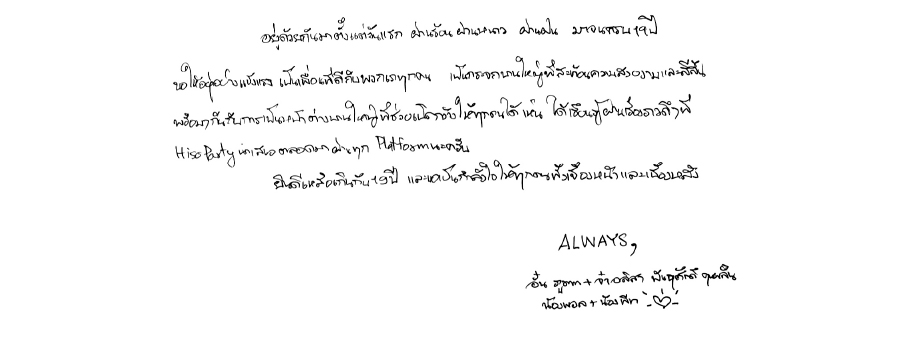 อยู่ด้วยกันมาตั้งแต่วันแรก ผ่านร้อน ผ่านหนาว ผ่านฝน มาจนครบ 19 ปี
ขอให้อยู่อย่างแข็งแรง เป็นเพื่อนที่ดีกับพวกเราทุกคน เป็นกระจกบานใหญ่ที่สะท้อนความสวยงามและสีสัน
พร้อมๆกันกับการเป็นหน้าต่างบานใหญ่ที่ช่วยเปิดวิวให้ทุกคนได้เห็น ได้เรียนรู้ผ่านเรื่องราวดีๆที่
HisoParty นำเสนอตลอดมา ผ่านทุก Platform นะครับ
ยินดีเหลือเกินกับ 19 ปี และขอเป็นกำลังใจให้ทุกคนทั้งเบื้องหน้าและเบื้องหลัง
ALWAYS,
อั๋น ภูวนาท + จ๋า อลิสา พันธุศักดิ์ คุนผลิน
น้องพอล + น้องพีท